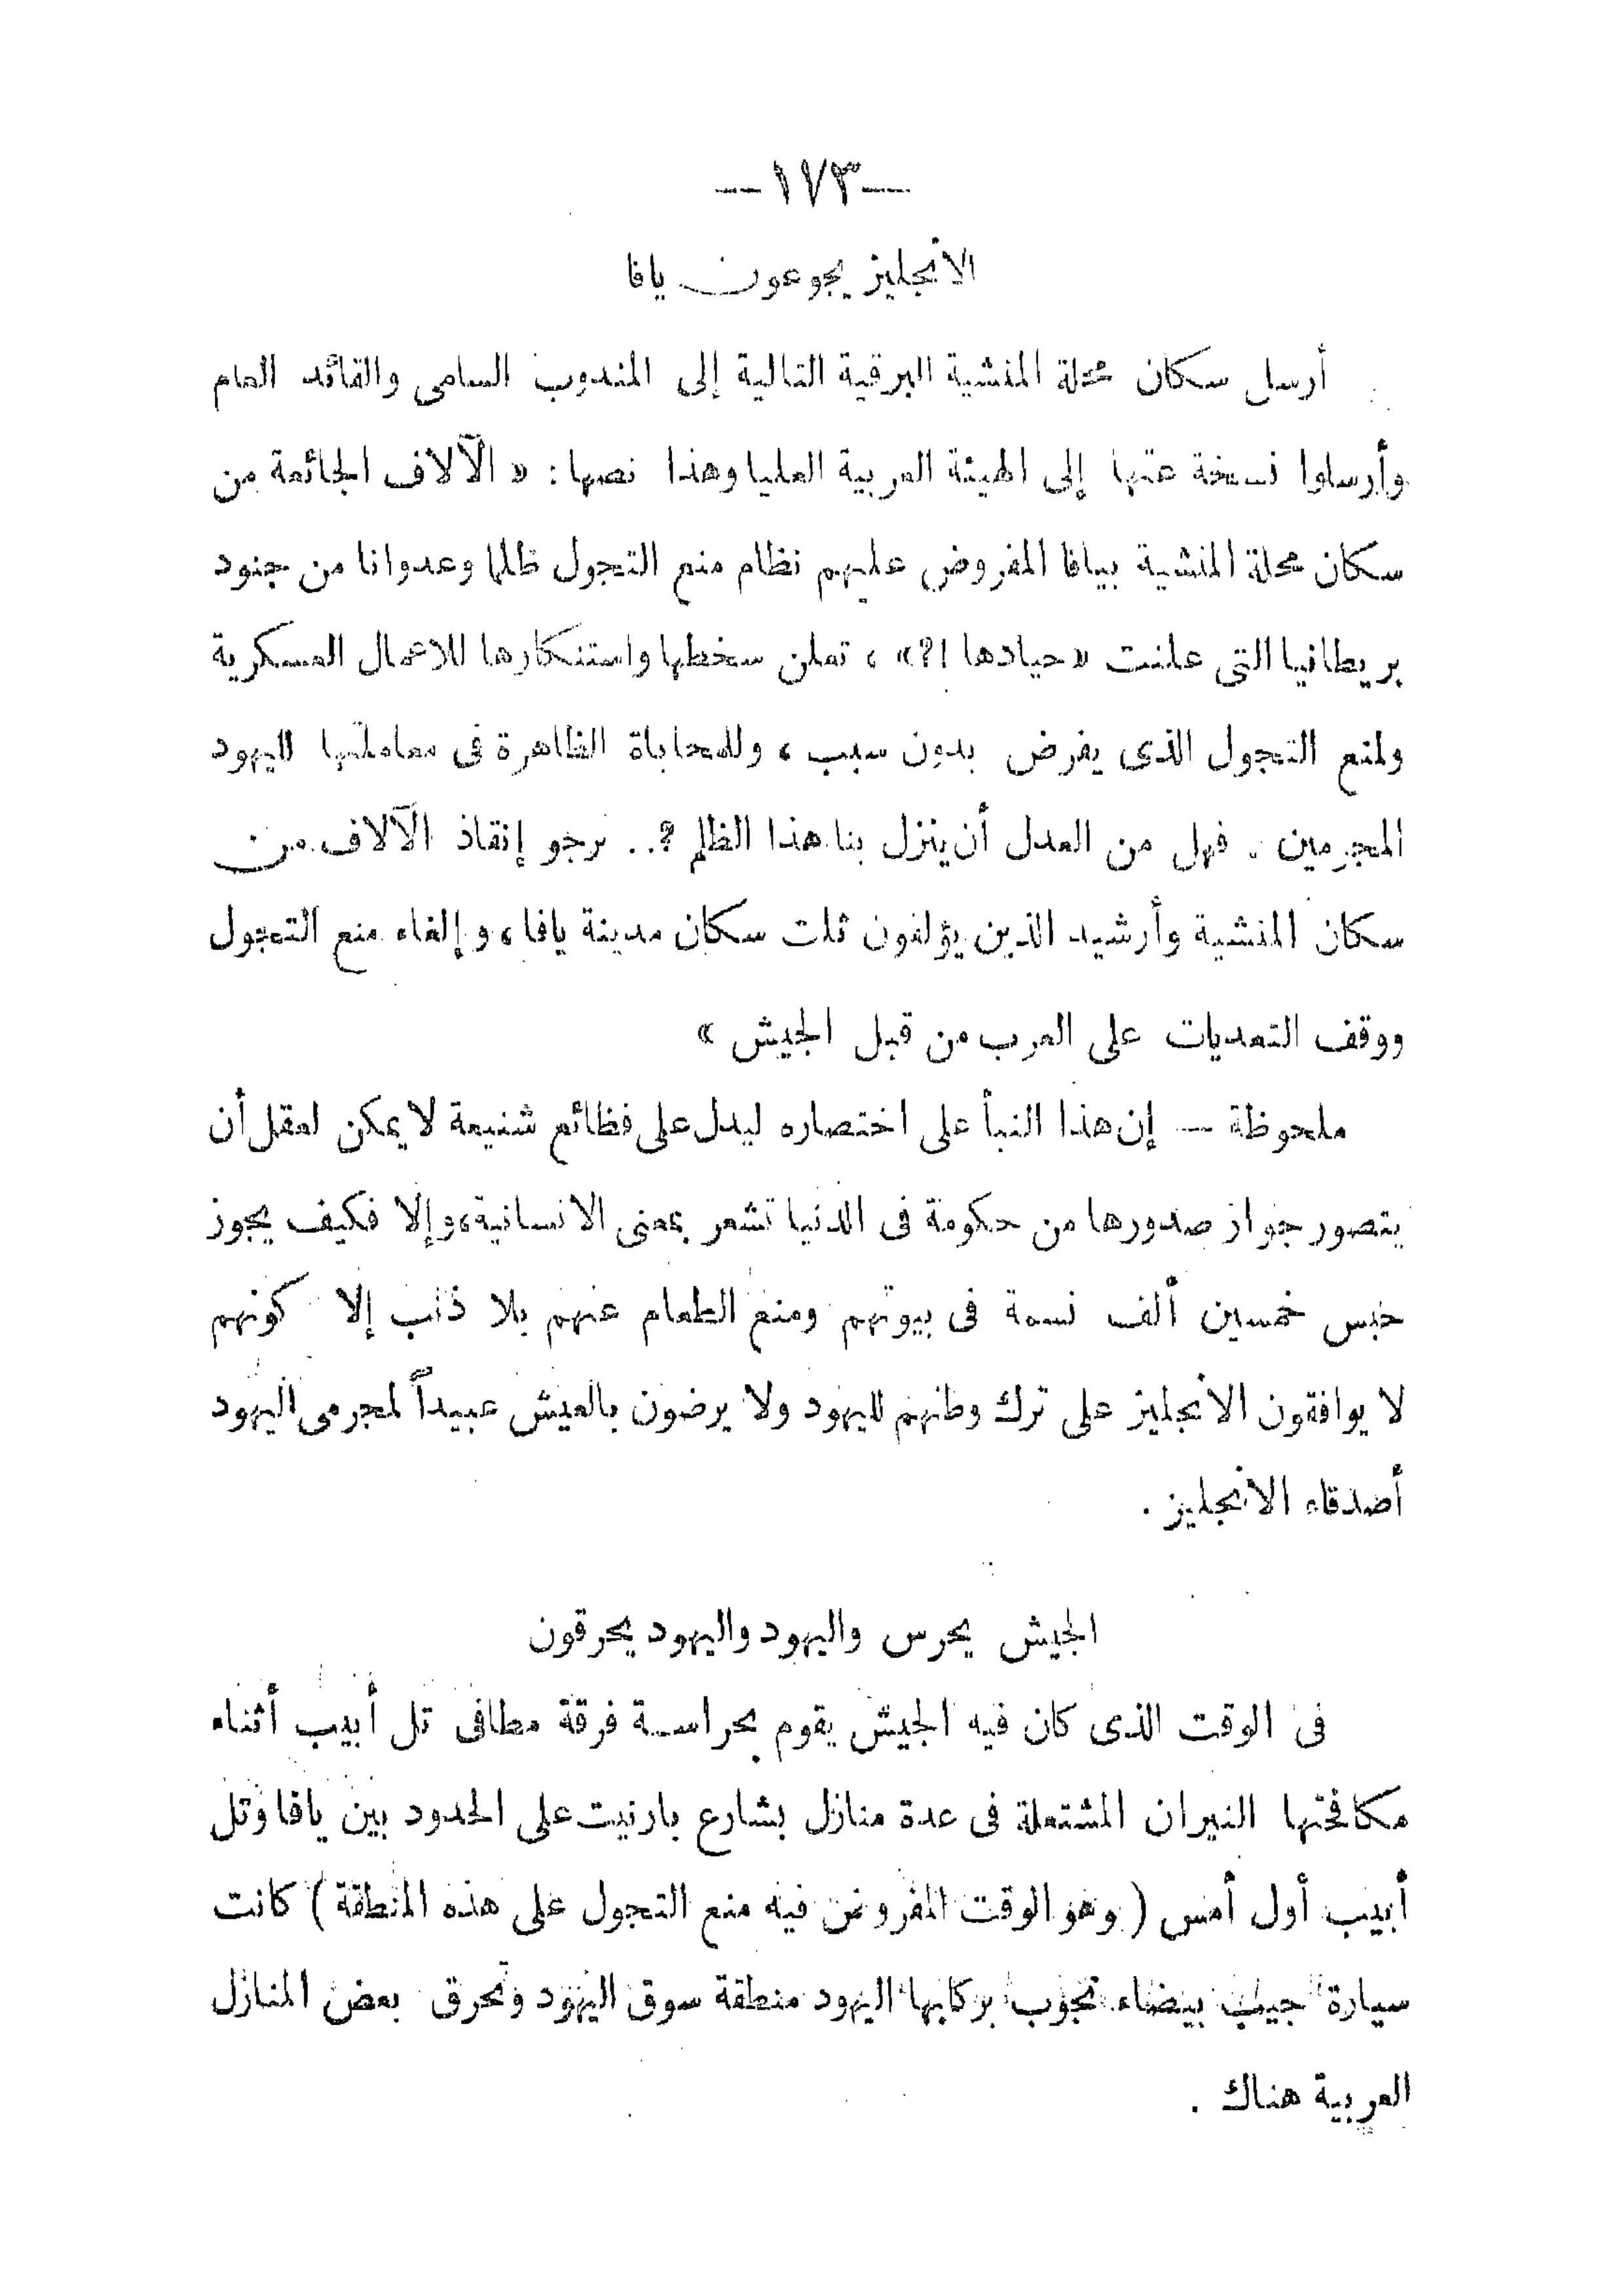 —١٧٣—
الانجليز يجوعون يافا
أرسل سكان محلة المنشية البرقية التالية إلى المندوب السامى والقائد العام
وأرسلوا نسخة عنها إلى الهيئة العربية العليا وهذا نصها : « الآلاف الجائعة من
سكان محلة المنشية بيافا المفروض عليهم نظام منع التجول ظلما وعدوانا من جنود
بريطانيا التى علنت «حيادها !؟» ، تعلن سخطها واستنكارها للاعمال العسكرية
ولمنع التجول الذى يفرض بدون سبب ، وللمحاباة الظاهرة فى معاملتها لليهود
المجرمين . فهل من العدل أن ينزل بنا هذا الظلم ؟.. نرجو إنقاذ الآلاف من
سكان المنشية وأرشيد الذين يؤلفون ثلث سكان مدينة يافا ، و إلغاء منع التجول
ووقف التعديات على العرب من قبل الجيش »
ملحوظة — إن هذا النبأ على اختصاره ليدل على فظائع شنيعة لا يمكن لعقل أن
يتصور جواز صدورها من حكومة فى الدنيا تشعر بمعنى الانسانية، و إلا فكيف يجوز
حبس خمسين ألف نسمة فى بيوتهم ومنع الطعام عنهم بلا ذنب إلا كونهم
لا يوافقون الانجليز على ترك وطنهم لليهود ولا يرضون بالعيش عبيداً لمجرمى اليهود
أصدقاء الانجليز .
الجيش يحرس واليهود واليهود يحرقون
فى الوقت الذى كان فيه الجيش يقوم بحراسة فرقة مطافى تل أبيب أثناء
مكافحتها النيران المشتعلة فى عدة منازل بشارع بارنيت على الحدود بين يافا وتل
أبيب أول أمس ( وهو الوقت المفروض فيه منع التجول على هذه المنطقة ) كانت
سيارة جيب بيضاء تجوب بركابها اليهود منطقة سوق اليهود وتحرق بعض المنازل
العربية هناك .